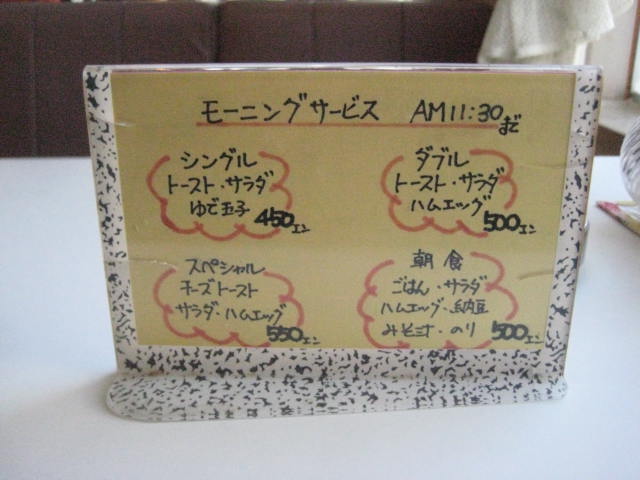 モーニングサービス AM11:30まで
シングル
トースト・サラダ
ゆで玉子 450エン
ダブル
トースト・サラダ
ハムエッグ 500エン
スペシャル
チーズトースト
サラダ・ハムエッグ 550エン
朝食
ごはん・サラダ
ハムエッグ・納豆
みそ汁・のり 500エン